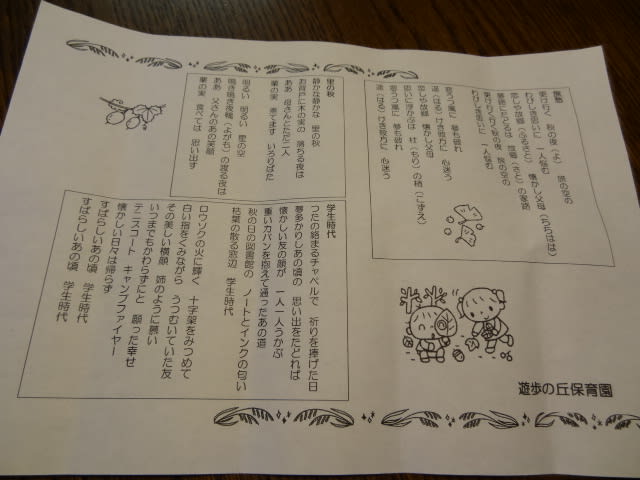 旅愁
更け行く 秋の夜(よ) 旅の空の
わびしき思いに 一人悩む
恋しや故郷(ふるさと) 懐かし父母(ちちはは)
夢路にたどるは 故郷(さと)の家路
更け行く 秋の夜 旅の空の
わびしき思いに 一人悩む
窓うつ嵐に 夢も破れ
遥(はる)けき彼方に 心迷う
恋しや故郷 懐かし父母
思いに浮かぶは 杜(もり)の梢(こずえ)
窓うつ嵐に 夢も破れ
遥(はる)けき彼方に 心迷う
里の秋
静かな静かな 里の秋
お背戸に木の実の 落ちる夜は
ああ 母さんとただ二人
栗の実 煮てます いろりばた
明るい 明るい 星の空
鳴き鳴き夜鴨(よがも)の渡る夜は
ああ 父さんのあの笑顔
栗の実 食べては 思い出す
学生時代
つたの絡まるチャペルで 祈りを捧げた日
夢多かりしあの頃の 思い出をたどれば
懐かしい友の顔が 一人一人うかぶ
重いカバンを抱えて通ったあの道
秋の日の図書館の ノートとインクの匂い
枯葉の散る窓辺 学生時代
ロウソクの火に輝く 十字架をみつめて
白い指をくみながら うつむいていた友
その美しい横顔 姉のように慕い
いつまでもかわらずにと 願った幸せ
テニスコート キャンプファイヤー
懐かしい日々は帰らず
すばらしいあの頃 学生時代
すばらしいあの頃 学生時代
遊歩の丘保育園